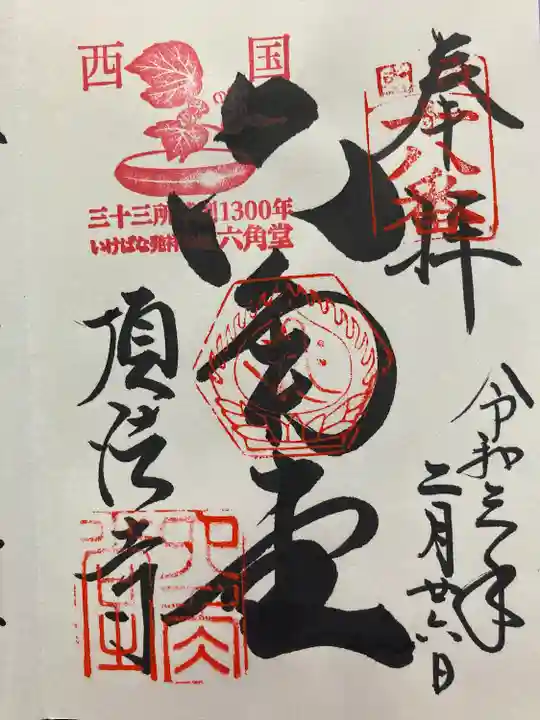 奉拝
十八番
令和三年二月廿六日
六角堂
西国
三十三所 1300年
いけばな発祥 六角堂
頂法寺